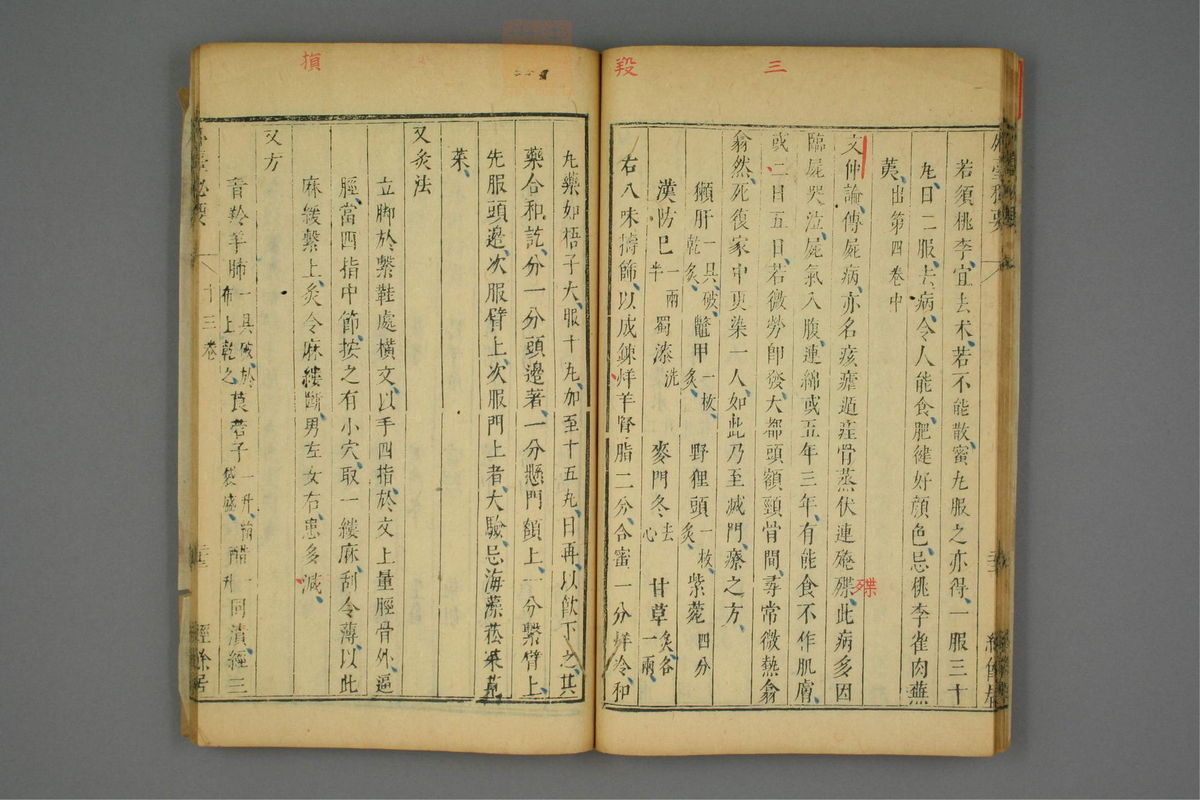 三
殺
若須桃李宜去术若不能散蜜丸服之亦得一服三十
丸日二服去病令人能食肥健好顔色忌桃李雀肉蕪
荑出第四卷中
文仲論傳屍病亦名痎瘧遁疰骨蒸伏連殗殜此病多因
殜
臨屍哭泣屍氣入腹連綿或五年三年有能食不作肌膚
或二日五日若微勞即發大都頭額頸骨間尋常微熱翕
翕然死復家中更染一人如此乃至滅門療之方
獺肝一具破乾炙 鼈甲一枚炙 野狸頭一枚炙 紫菀四分
漢防巳一兩半 蜀漆洗 麥門冬去心 甘草炙各一兩
右八味擣篩以成鍊烊羊腎脂二分合蜜一分烊令和
丸藥如梧子大服十丸加至十五丸日再以飲下之其
藥合和訖分一分頭邊著一分懸門額上一分繫臂上
先服頭邊次服臂上次服門上者大驗忌海藻菘菜莧
菜
又灸法
立脚於繫鞋處橫文以手四指於文上量脛骨外逼
脛當四指中節按之有小穴取一縷麻刮令薄以此
麻緩繫上灸令麻縷斷男左女右患多減
又方
青羚羊肺一具陂於布上乾之 莨菪子一升 醋一升同漬經三
十三卷
經餘居